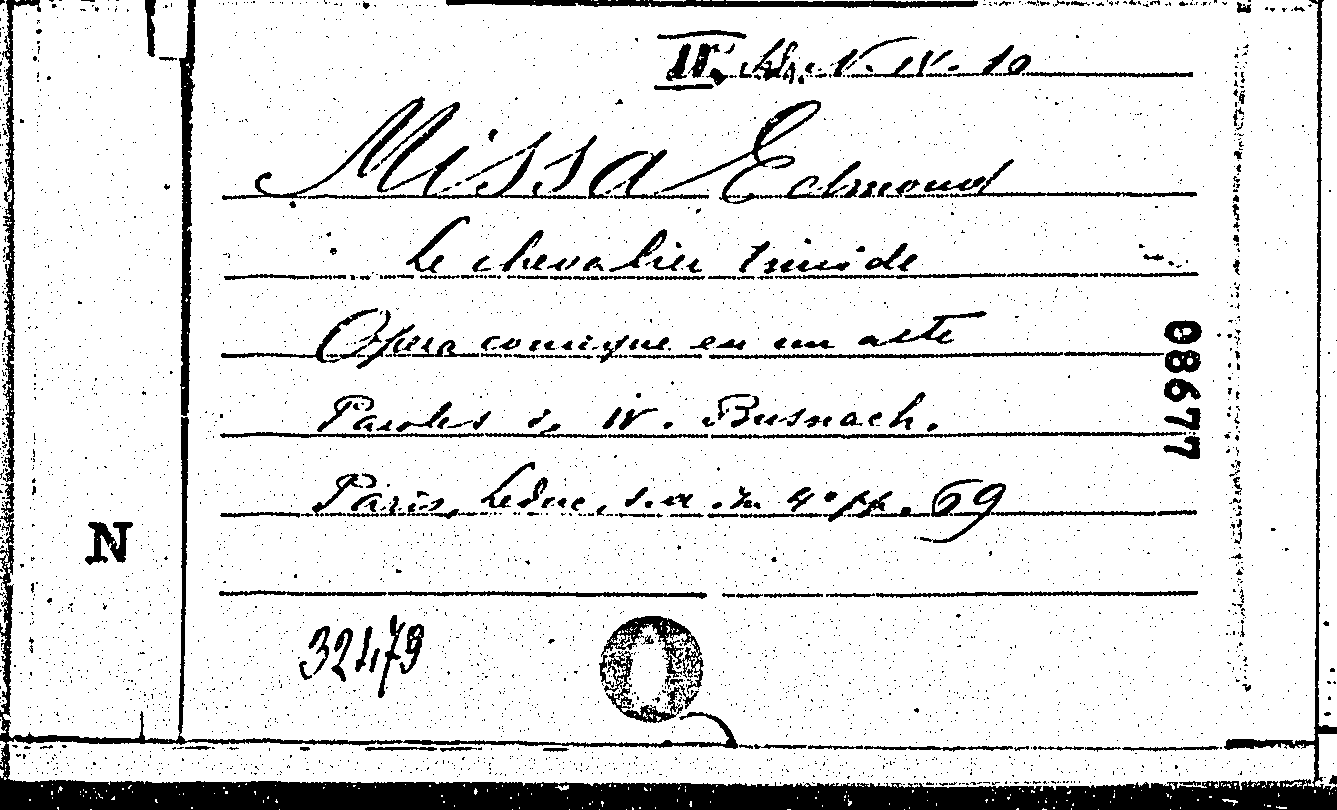 N. IV. 10
Missa Edmond
Le chevalier timide
Opera comique en un acte
Paroles de W. Busnach.
Paris, Leduc, s.a in 4° pp. 69
08677
N
32479